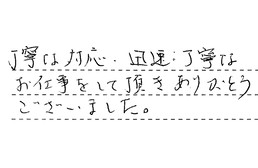 丁寧な対応、迅速、丁寧な
お仕事をして頂きありがとう
ございました。